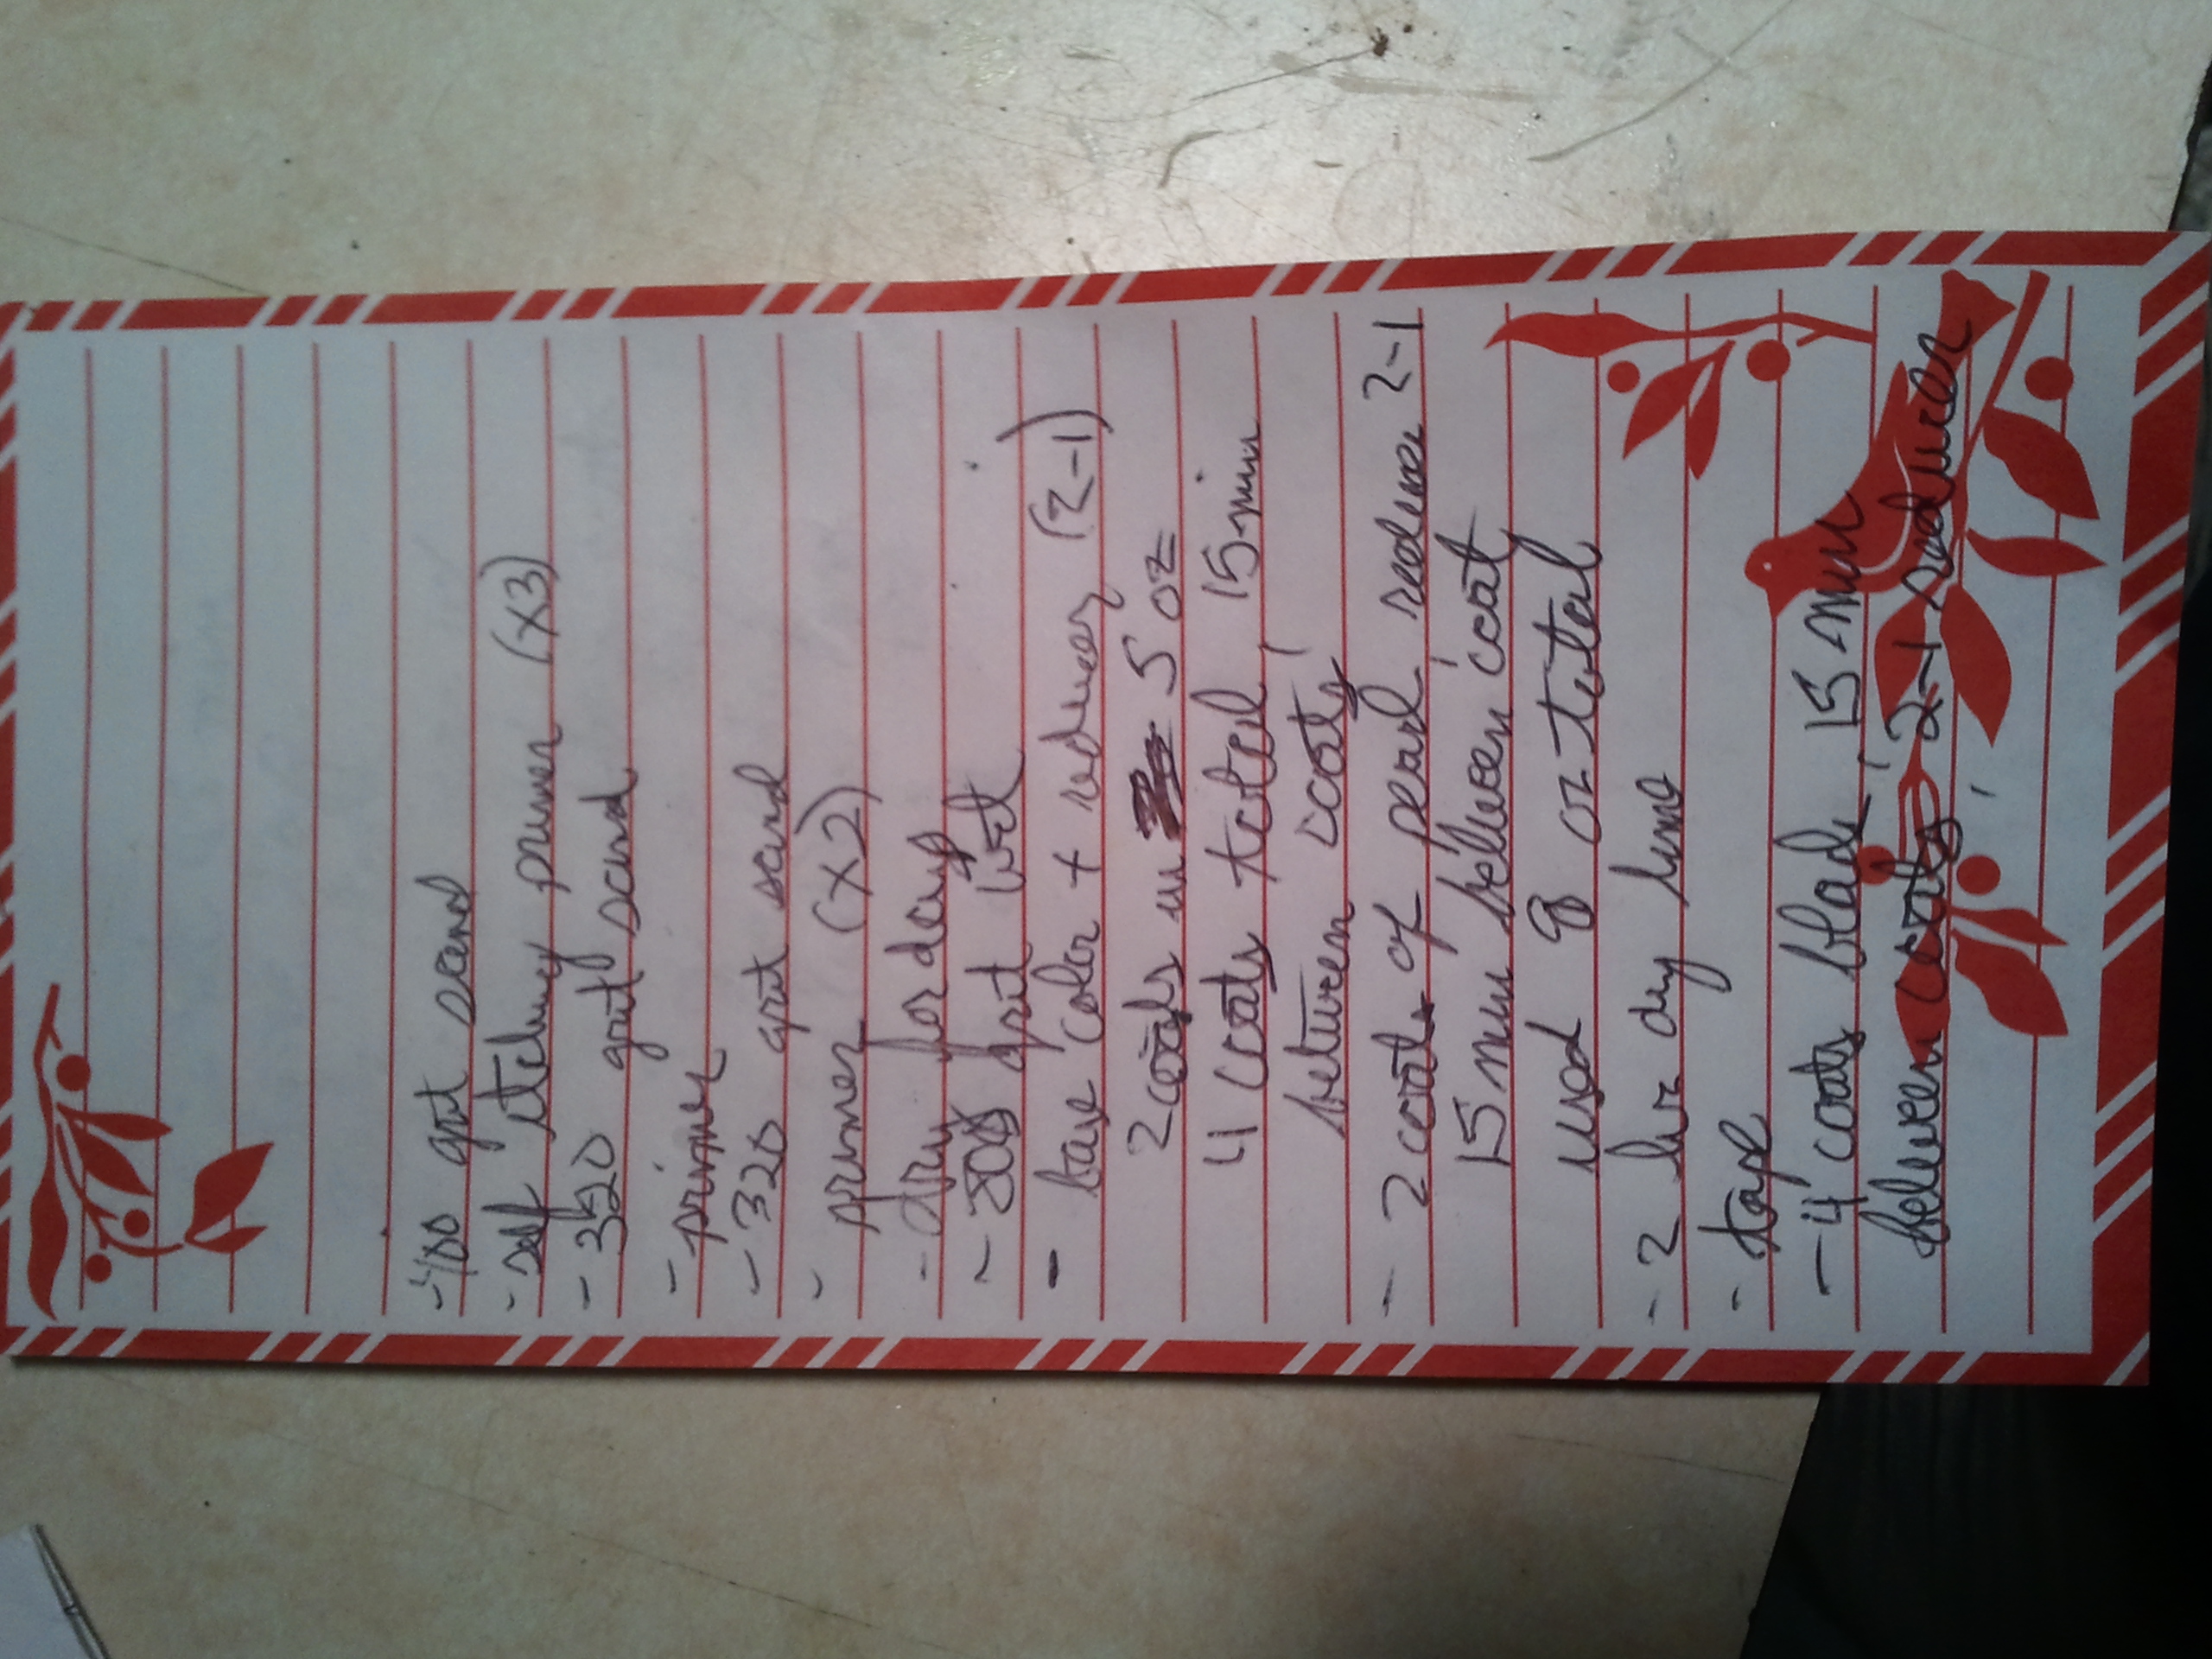 - 400 grit sand
- self etching primer (x3)
- 320 grit sand
- primer
- 320 grit sand
- primer (x2)
- dry for days
- 800 grit wet
- base color + reducer (2-1)
2 coats in 5 oz
4 coats total, 15 min
between coats
- 2 coats of pearl, reduce 2-1
15 min between coat
used 8 oz total
- 2 hr dry time
- tape
- 4 coats black, 15 min
between coats, 2-1 reducer